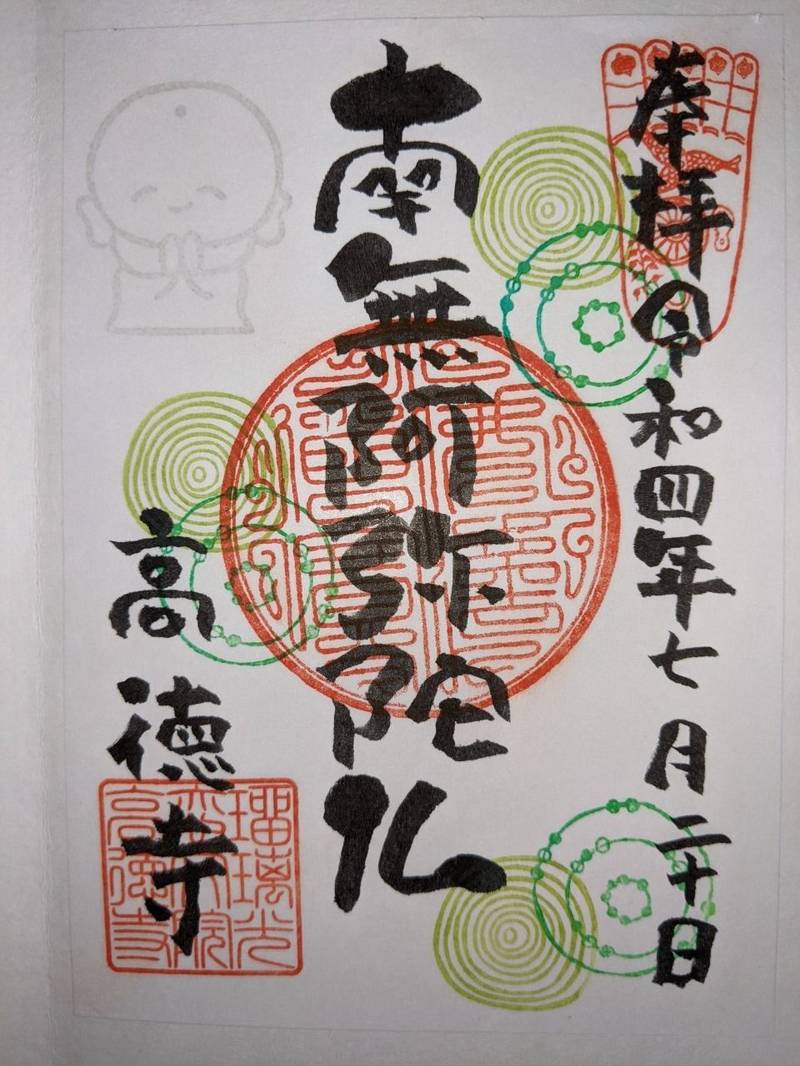 奉拝 令和四年七月二十日
南無阿弥陀仏
高徳寺
瑠璃光
高徳寺